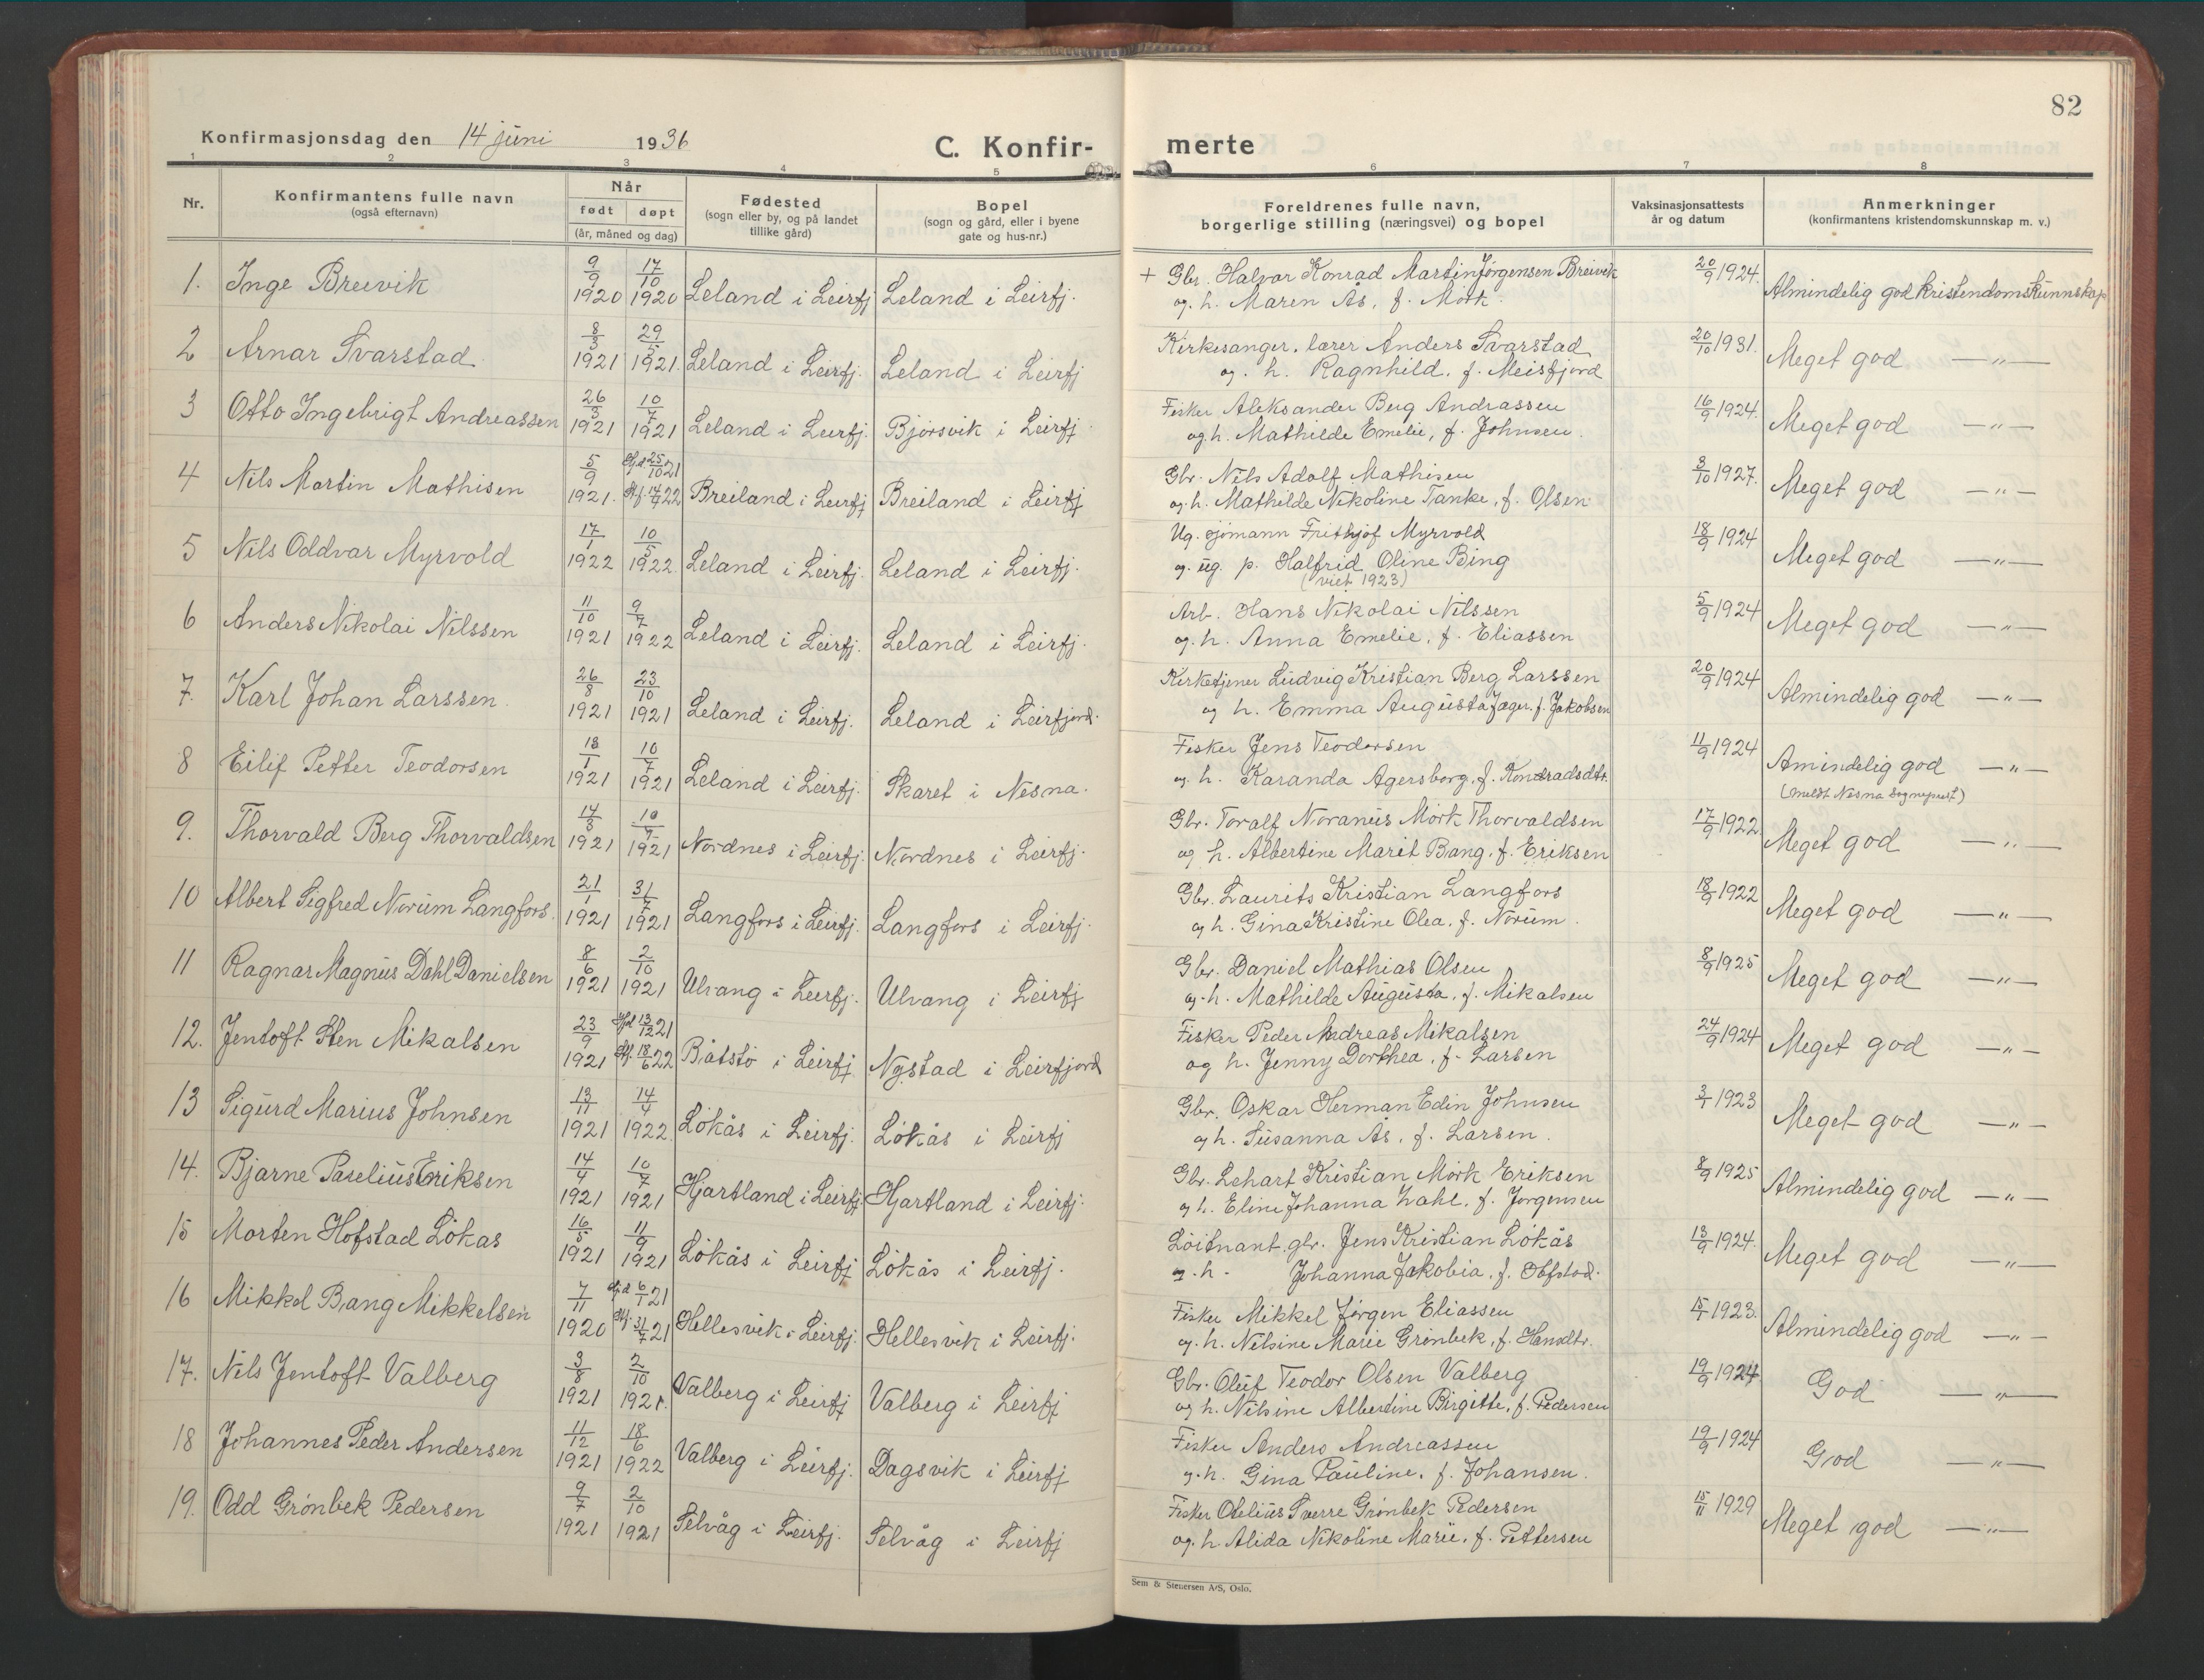 82
Konfirmasjonsdag den 14 juni 1936
C. Konfirmerte
1 2 3 4 5 6 7 8
Nr. Konfirmantens fulle navn (også efternavn) Når født døpt (år, måned og dag) Fødested (sogn eller by, og på landet tillike gård) Bopel (sogn og gård, eller i byene gate og hus-nr.) Foreldrenes fulle navn, borgerlige stilling (næringsvei) og bopel Vaksinasjonsattests år og datum Anmerkninger (konfirmantens kristendomskunnskap m. v.)
1. Inge Breivik 9/9 1920 17/10 1920 Leland i Leirfj Leland i Leirfj. + Gbr. Halvor Konrad Martin Jørgensen Breivik 20/9 1924. Almindelig god kristendomskunnskap
og. h. Maren Ås, f. Mørk.
2 Arnar Svarstad 8/3 1921 29/5 1921. Leland i Leirfj. Leland i Leirfj Kirkesanger, lærer Anders Svarstad 20/10 1931. Meget god — " —
og. h. Ragnhild, f. Meisfjord
3 Otto Ingebrigt Andreassen 26/3 1921 10/7 1921 Leland i Leirfj. Bjørsvik i Leirfj. Fisker Aleksander Berg Andrassen 16/9 1924. Meget god — " —
og. h. Mathilde Emelie, f. Johnsen.
4 Nils Martin Mathisen 5/9 1921. Hjd 25/10 21 22 Breiland i Leirfj Breiland i Leirfj Gbr. Nils Adolf Mathisen 3/10 1927. Meget god — " —
og. h. Mathilde Nikoline Tanke, f. Olsen
5 Nils Oddvar Myrvold 17/1 1922 10/5 1922. Leland i Leirfj. Leland i Leirfj. Ug. sjømann Frithjof Myrvold 18/9 1924 Meget god — " —
og. ug. p. Halfrid Oline Bing
(viet 1923)
6 Anders Nikolai Nilssen 11/10 1921 9/7 1922 Leland i Leirfj. Leland i Leirfj. Arb. Hans Nikolai Nilssen 5/9 1924 Meget god — " —
og. h. Anna Emelie, f. Eliassen
7. Karl Johan Larssen. 26/8 1921 23/10 1921 Leland i Leirfj. Leland i Leirfjord. Kirketjener Ludvig Kristian Berg Larssen 20/9 1924 Almindelig god — " —
og h. Emma Augusta Jæger. f. Jakobsen
8 Eilif Petter Teodorsen 18/1 1921 10/7 1921 Leland i Leirfj. Skaret i Nesna. Fisker Jens Teodorsen 11/9 1924 Amindelig god — " —
og. h. Karanda Agersborg, f. Kondradsdtr. (meldt Nesna sogneprest)
9. Thorvald Berg Thorvaldsen 14/3 1921 10/7 1921 Nordnes i Leirfj. Nordnes i Leirfj. Gbr. Toralf Noranus Mørk Thorvaldsen 17/9 1922. Meget god — " —
og h. Albertine Marit Bang, f. Eriksen
10 Albert Sigfred Norum Langfors. 21/1 1921 3/7 1921 Langfors i Leirfj. Langfors i Leirfj. Gbr. Laurits Kristian Langfors 18/9 1922 Meget god — " —
og h. Gina Kristine Olea, f. Norum.
11 Ragnar Magnus Dahl Danielsen 8/6 1921 2/10 1921 Ulvang i Leirfj. Ulvang i Leirfj Gbr. Daniel Mathias Olsen 8/9 1925 Meget god — " —
og. h. Mathilde Augusta, f. Mikalsen
12. Jentoft Sten Mikalsen 23/9 1921 Hjd 13/12 21 18/6 22 Båtstø i Leirfj Nystad i Leirfjord Fisker Peder Andreas Mikalsen 24/9 1924 Meget god — " —
og h. Jenny Dorthea, f. Larsen
13 Sigurd Marius Johnsen 13/11 1921 14/4 1922. Løkås i Leirfj. Løkås i Leirfj Gbr. Oskar Herman Edin Johnsen 3/1 1923 Meget god — " —
og h. Susanna As, f. Larsen.
14. Bjarne Paselius Eriksen 14/4 1921 10/7 1921 Hjartland i Leirfj. Hjartland i Leirfj. Gbr. Lehart Kristian Mørk Eriksen 8/9 1925 Almindelig god — " —
og h. Eline Johanna Zahl, f. Jørgensen
15 Morten Hofstad Løkås 16/5 1921 11/9 1921 Løkås i Leirfj Løkås i Leirfj. Løitnant. gbr. Jens Kristian Løkås 13/9 1924. Meget god — " —
og. h. Johanna Jakobia, f. Hofstad.
16 Mikkel Bang Mikkelsen 7/11 1920 Hjd 6/1 21 31/7 21 Hellesvik i Leirfj. Hellesvik i Leirfj. Fisker Mikkel Jørgen Eliassen 15/1 1923. Almindelig god — " —
og. h. Nilsine Marie Grønbek, f. Hansdtr.
17. Nils Jentoft Valberg 3/8 1921 2/10 1921. Valberg i Leirfj Valberg i Leirfj Gbr. Oluf Teodor Olsen Valberg 19/9 1924 God — " —
og h. Nilsine Albertine Birgitte, f. Pedersen
18 Johannes Peder Andersen 11/12 1921 18/6 1922 Valberg i Leirfj. Dagsvik i Leirfj Fisker Anders Andreassen 19/9 1924 God — " —
og. h. Gina Pauline, f. Johansen.
19. Odd Grønbek Pedersen 9/7 1921 2/10 1921 Selvåg i Leirfj. Selvåg i Leirfj Fisker Otelius Sverre Grønbek Pedersen 15/11 1929 Meget god — " —
og. h. Alida Nikoline Marie, f. Pettersen
Sem & Stenersen A/S, Oslo.